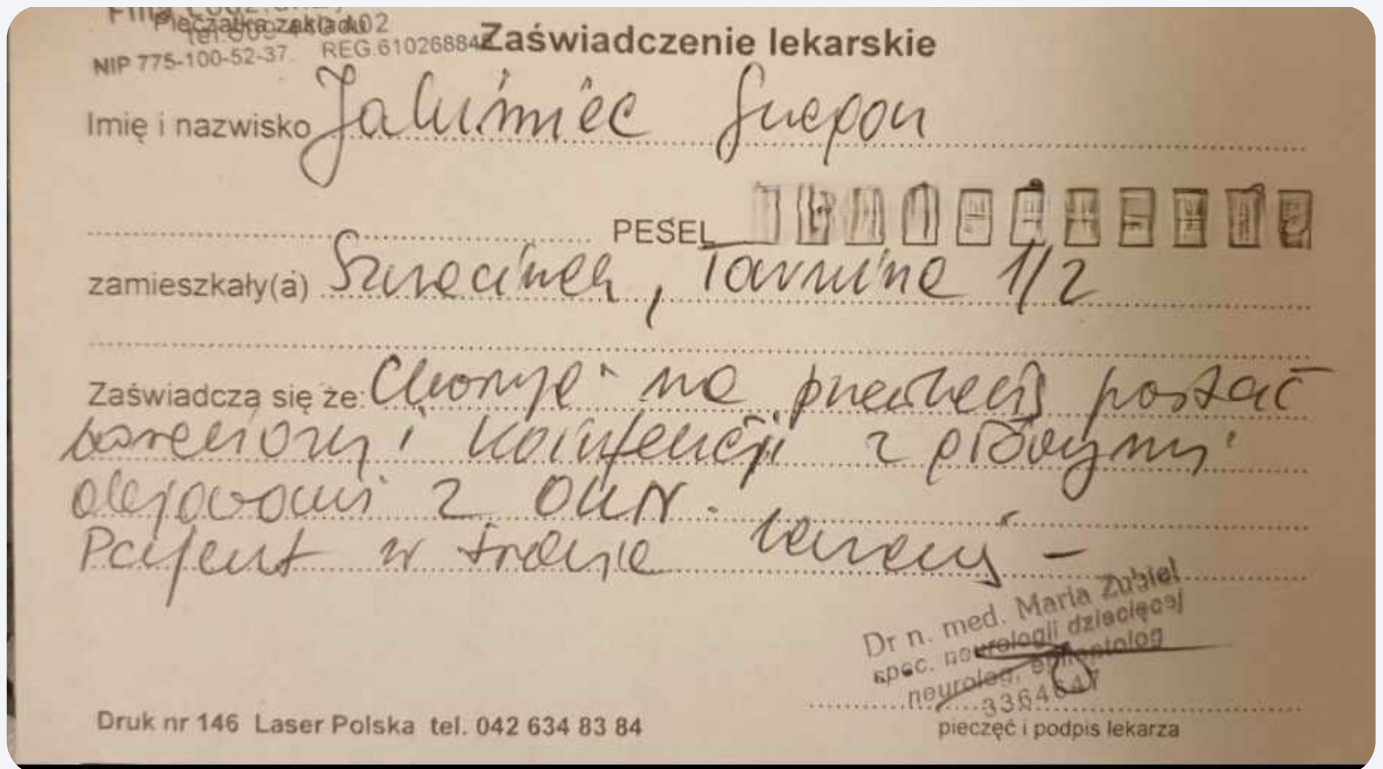 Pieczątka zakładu
NIP 775-100-52-37 REG.61026884
Zaświadczenie lekarskie
Imię i nazwisko
PESEL
zamieszkały(a) Szczecinek, 1/2
Zaświadcza się że: Choruje na przewlekłą postać
boreliozy i koinfekcji z
objawami z OUN.
Pacjent w trakcie leczenia –
Dr n. med. Maria Zubiel
spec. neurologii dziecięcej
neurolog, epileptolog
3364647
pieczęć i podpis lekarza
Druk nr 146 Laser Polska tel. 042 634 83 84